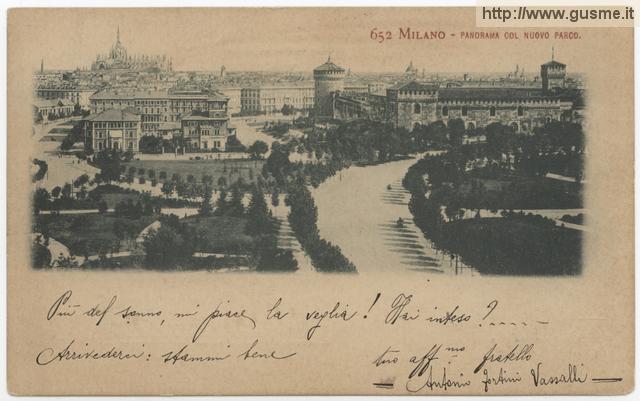 http://www.gusme.it/
652 MILANO - PANORAMA COL NUOVO PARCO.
Più del sonno, mi piace la veglia! Hai inteso?......
Arrivederci: stammi bene
tuo aff.mo fratello
— Antonio Fortini Vassalli —